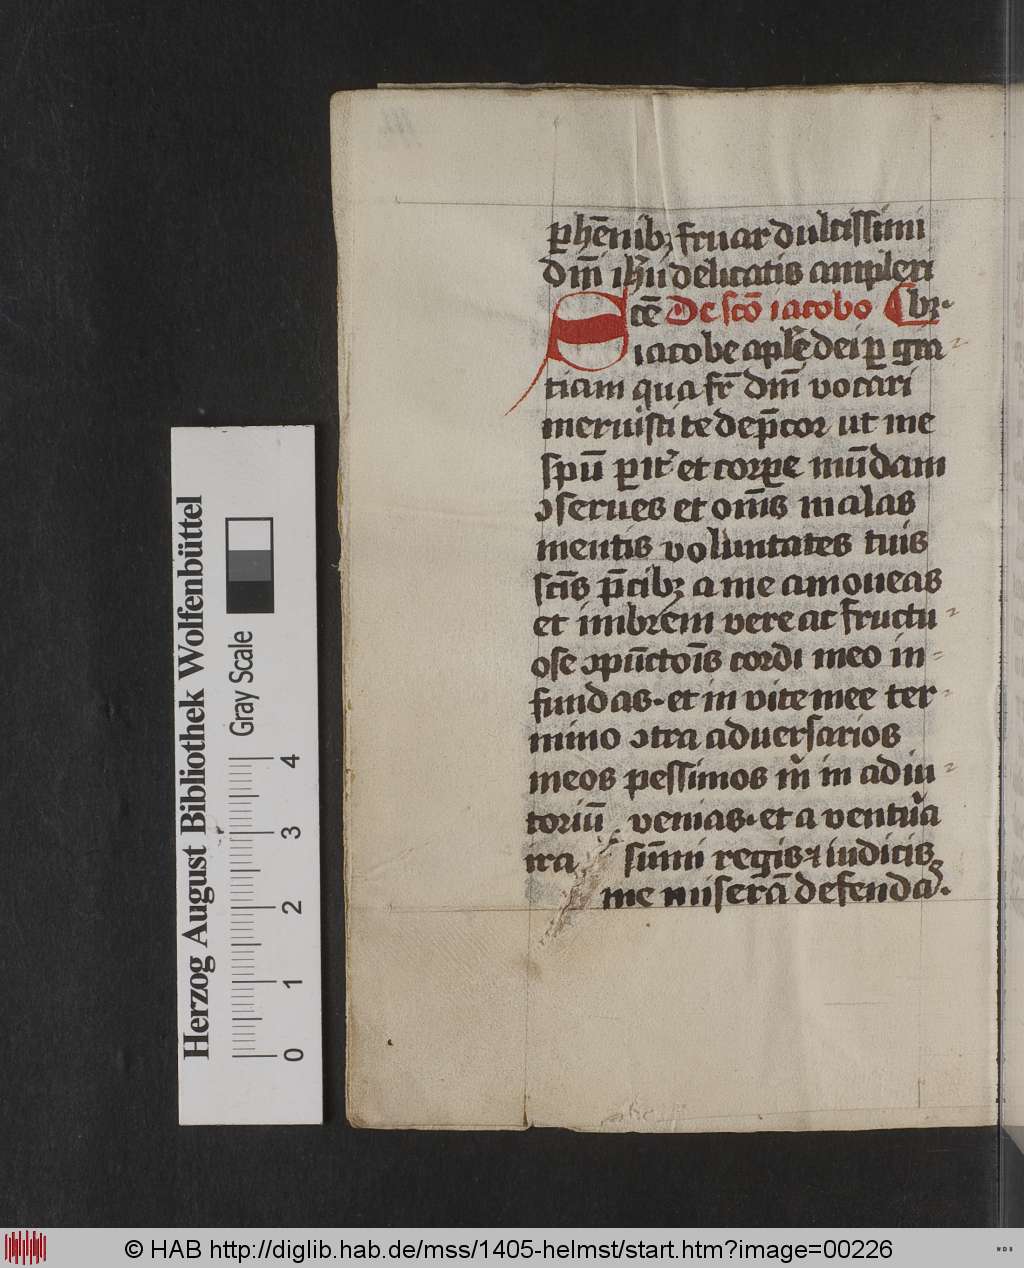 ꝑhēnibꝫ fruar dulcissimi
dm̄i ihū delicatis amplexi
bꝰ.
Scē De scō iacobo
iacobe aplē dei ꝑ gra-
tiam qua fr̄ dm̄i vocari
meruisti te dep̄cor ut me
spū ꝑit' et corꝑe mūdam
ↄserues et om̄s malas
mentis voluntates tuis
sc̄is p̄cibꝫ a me amoueas
et imbrem vere ac fructu-
ose ↄpūctōis cordi meo in-
fundas. et in vite mee ter-
mino ↄtra aduersarios
meos pessimos m̄ in adiu-
toriū venias. et a ventūa
ira sūmi regis ⁊ iudicis
me miserā defendas.
Herzog August Bibliothek Wolfenbüttel
Gray Scale
0 1 2 3 4
© HAB http://diglib.hab.de/mss/1405-helmst/start.htm?image=00226